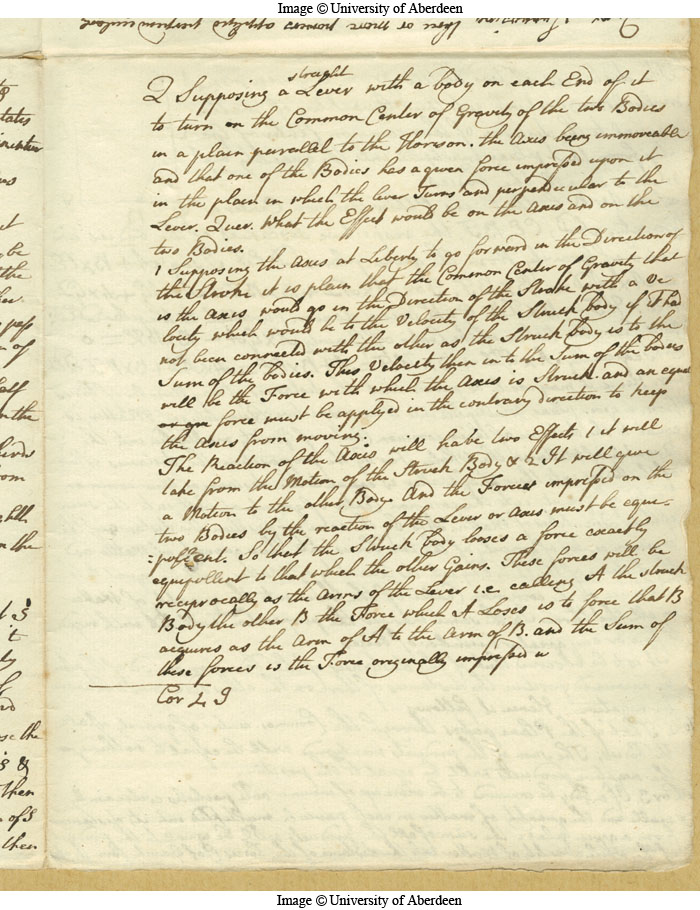 Image © University of Aberdeen
2 Supposing a straight Lever with a body on each End of it
to turn on the Common Center of Gravity of the two Bodies
in a plain parrallel to the Horison. the Axis being immoveable
and that one of the Bodies has a given force impressed upon it
in the plain in which the lever Turns and perpendicular to the
Lever. Quer. What the Effect would be on the Axis and on the
two Bodies.
1 Supposing the Axis at Liberty to go forward in the Direction of
the Stroke it is plain that the Common Center of Gravity that
is the Axis would go in the Direction of the Stroke with a Ve
locity which would be to the Velocity of the Struck body if it had
not been connected with the other as the Struck body is to the
Sum of the bodies. This Velocity then in to the Sum of the bodies
will be the Force with which the Axis is Struck. and an equal
force must be applyed in the contrary direction to keep
the Axis from moving.
The Reaction of the Axis will have two Effects 1 it will
take from the Motion of the Struck Body & 2 It will give
a Motion to the other Body. And the Forces impressed on the
two Bodies by the reaction of the Lever or Axis must be eque-
So that the Struck body looses a force exactly
equipollent to that which the other Gains. These forces will be
reciprocally as the Arms of the Lever i.e. calling A the struck
Body the other B the Force which A Loses is to force that B
acquires as the Arm of A to the Arm of B. and the Sum of
these forces is the Force originally impressed
Cor
Image © University of Aberdeen